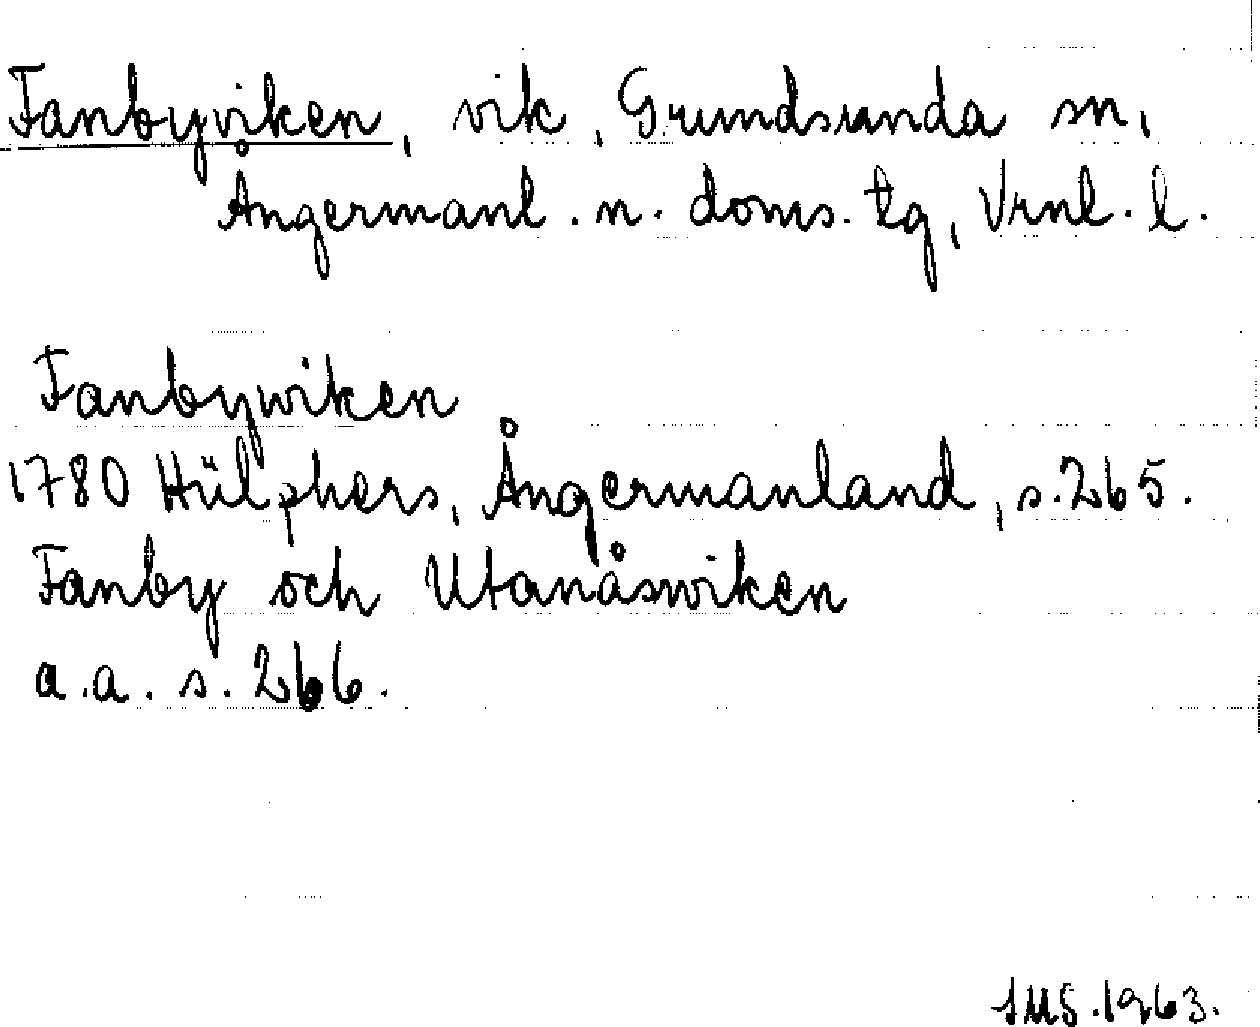 Fanbyviken, vik, Grundsunda sn,
Ångermanl. n. doms. tg, Vrnl. l.
Fanbywiken
1780 Hülphers, Ångermanland, s. 265.
Fanby och Utanåswiken
a.a. s. 266.
SMS. 1963.